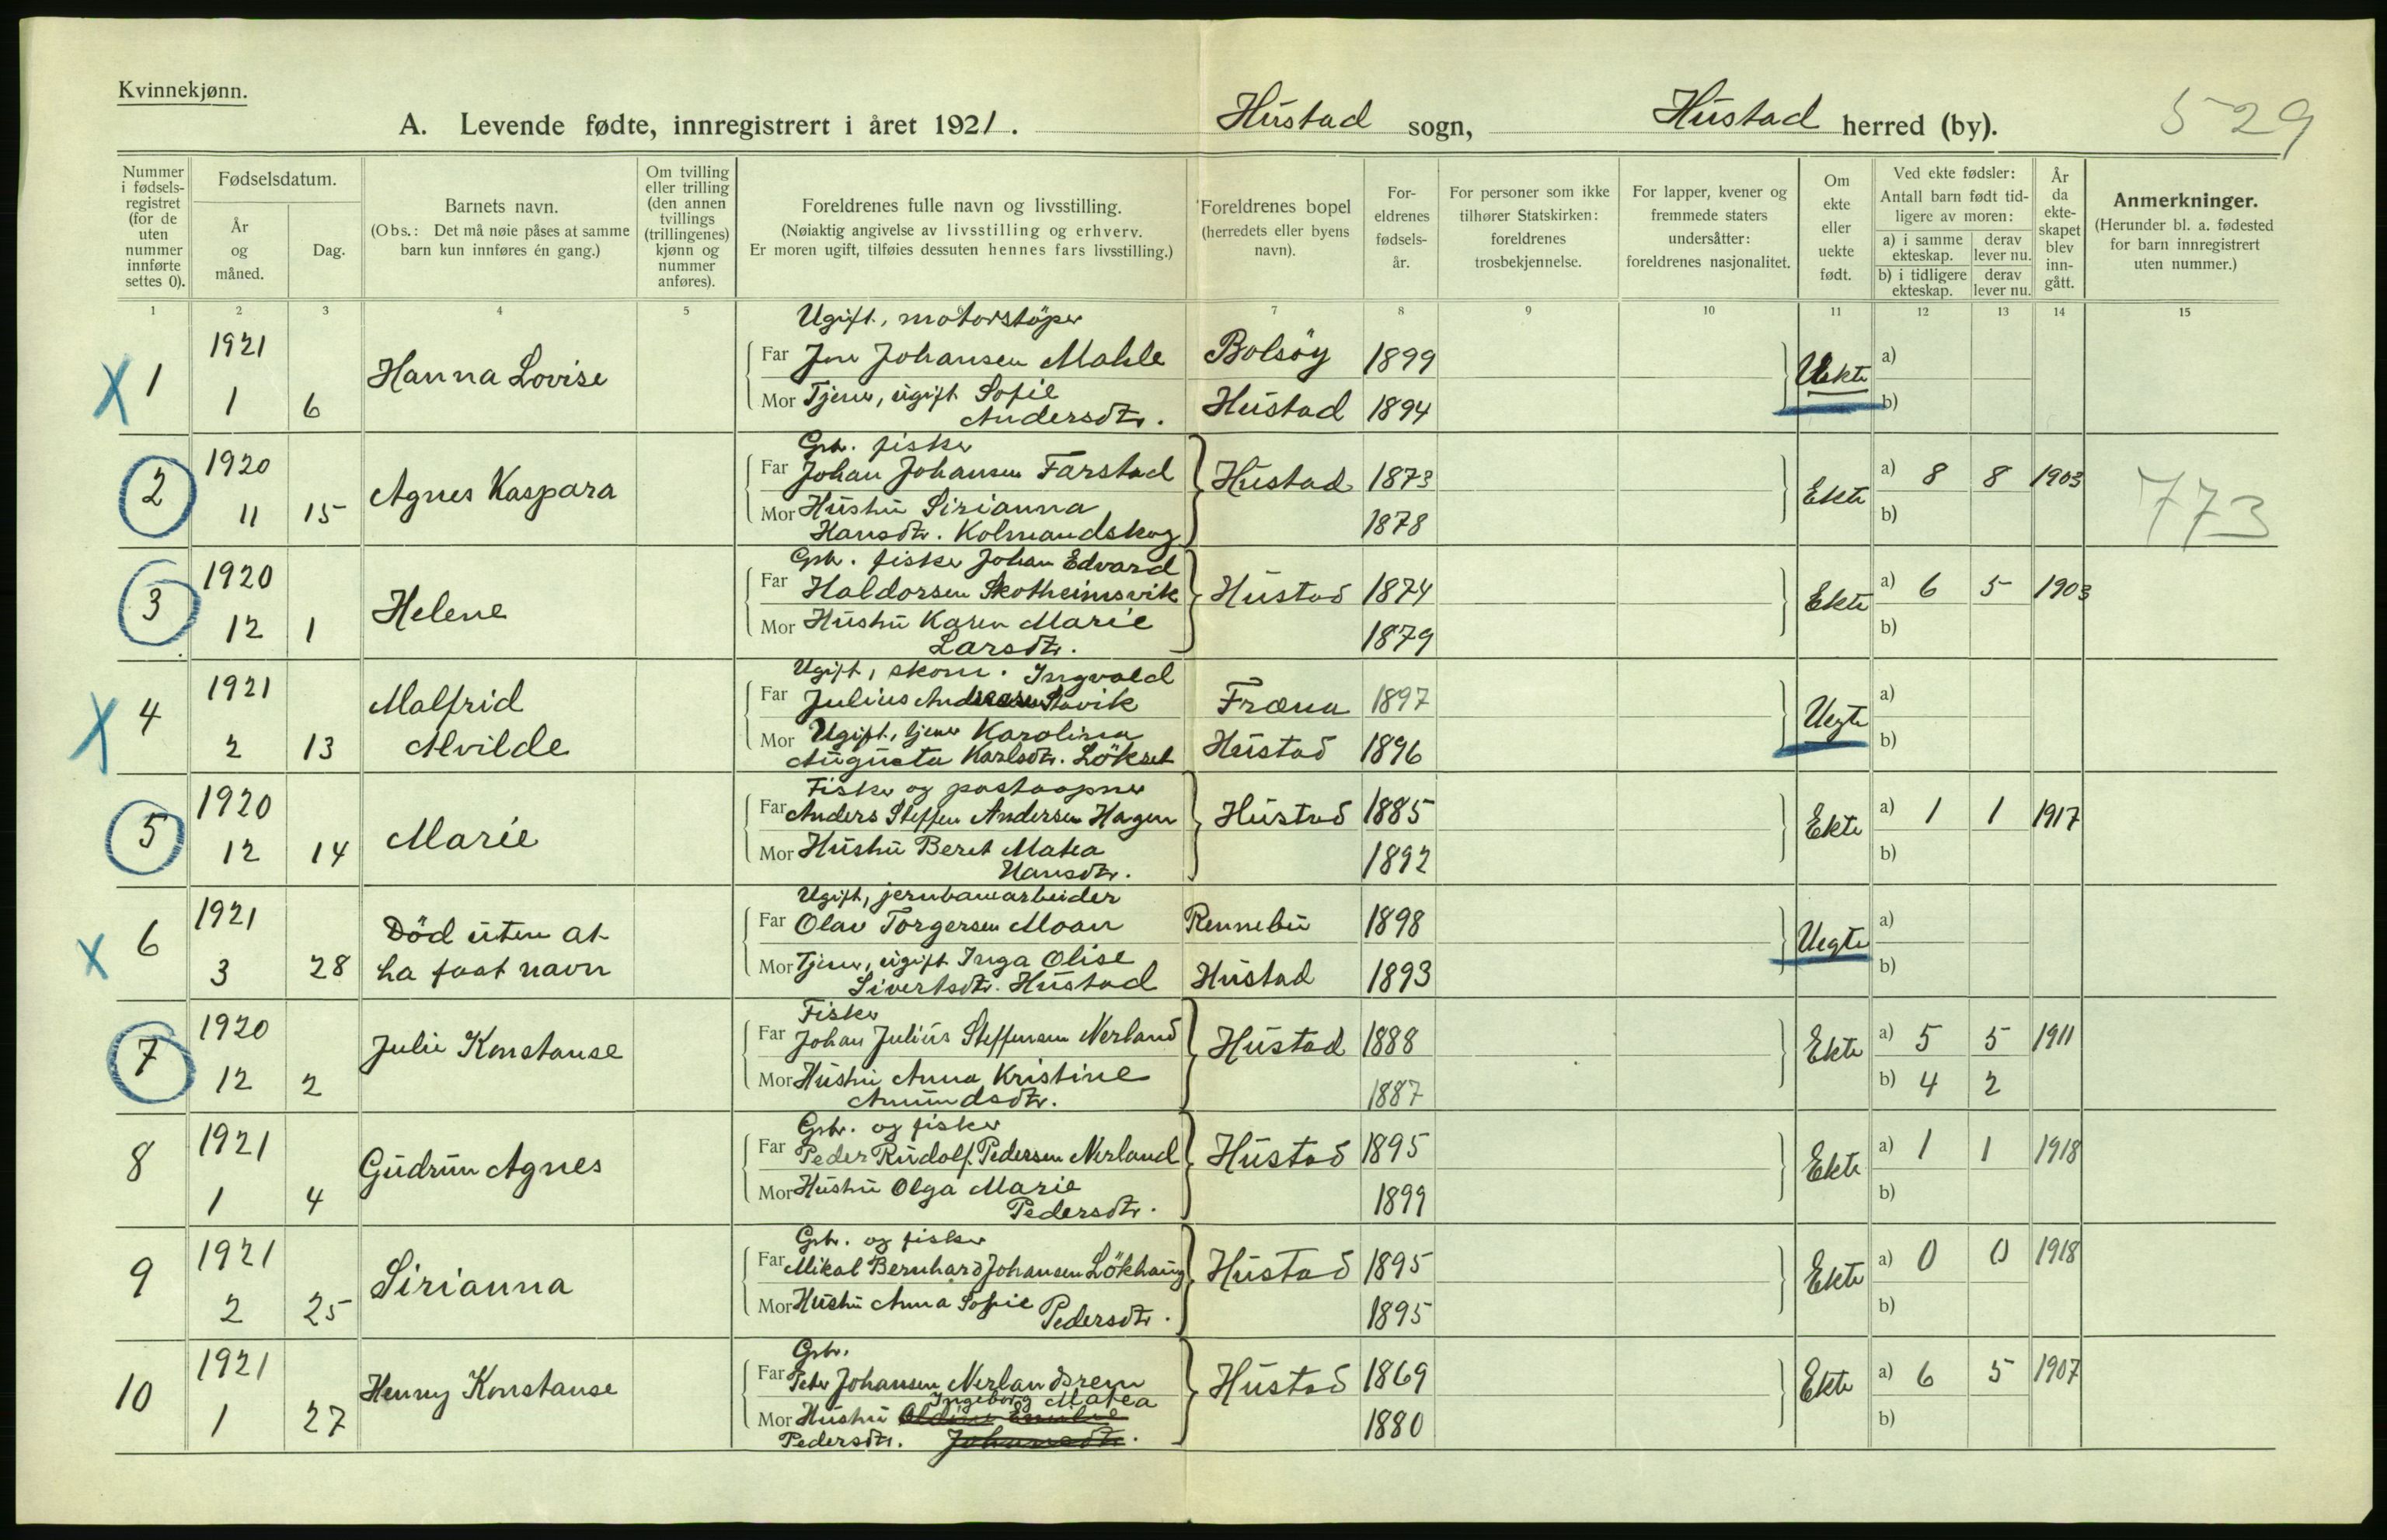 Kvinnekjønn.
A. Levende fødte, innregistrert i året 1921. Hustad sogn, Hustad herred (by). 529
Nummer i fødsels-registret (for de uten nummer innførte settes 0).
Fødselsdatum.
År og måned.
Dag.
Barnets navn.
(Obs.: Det må nøie påses at samme barn kun innføres én gang.)
Om tvilling eller trilling (den annen tvillings (trillingenes) kjønn og nummer anføres).
Foreldrenes fulle navn og livsstilling.
(Nøiaktig angivelse av livsstilling og erhverv.
Er moren ugift, tilføies dessuten hennes fars livsstilling.)
Foreldrenes bopel
(herredets eller byens navn).
For-eldrenes fødsels-år.
For personer som ikke tilhører Statskirken: foreldrenes trosbekjennelse.
For lapper, kvener og fremmede staters undersåtter: foreldrenes nasjonalitet.
Om ekte eller uekte født.
Ved ekte fødsler:
Antall barn født tid-ligere av moren:
a) i samme ekteskap.
derav lever nu.
b) i tidligere ekteskap.
derav lever nu.
År da ekte-skapet blev inn-gått.
Anmerkninger.
(Herunder bl. a. fødested for barn innregistrert uten nummer.)
1 2 3 4 5 7 8 9 10 11 12 13 14 15
Ugift, motorstöper
X 1 1921 Hanna Lovise Far Jon Johansen Mahle Bolsöy 1899 Uekte a)
1 6 Mor Tjener, ugift Sofie Hustad 1894 b)
Andersdtr.
Grbr. fisker
2 1920 Agnes Kaspara Far Johan Johansen Farstad Hustad 1873 Ekte a) 8 8 1903 773
11 15 Mor Hustru Sirianna 1878 b)
Hansdtr. Kolmandskog
Gbr. fisker Johan Edvard
3 1920 Helene Far Haldorsen Skotheimsvik Hustad 1874 Ekte a) 6 5 1903
12 1 Mor Hustru Karen Marie 1879 b)
Larsdtr.
Ugift, skom. Ingvald
X 4 1921 Malfrid Far Julius Andreasen Stavik Fræna 1897 Uegte a)
2 13 Alvilde Mor Ugift, tjener Karolina Hustad 1896 b)
Augusta Karlsdtr. Lökset
Fisker og postaapner
5 1920 Marie Far Anders Steffen Andersen Hagen Hustad 1885 Ekte a) 1 1 1917
12 14 Mor Hustru Beret Matea 1892 b)
Hansdtr.
Ugift, jernbanearbeider
X 6 1921 Död uten at Far Olav Torgersen Moan Rennebu 1898 Uegte a)
3 28 ha faat navn Mor Tjener, ugift Inga Olise Hustad 1893 b)
Sivertsdtr. Hustad
Fisker
7 1920 Julie Konstanse Far Johan Julius Steffensen Nerland Hustad 1888 Ekte a) 5 5 1911
12 2 Mor Hustru Anna Kristine 1887 b) 4 2
Amundsdtr.
Grbr. og fisker
8 1921 Gudrun Agnes Far Peder Rudolf Pedersen Nerland Hustad 1895 Ekte a) 1 1 1918
1 4 Mor Hustru Olga Marie 1899 b)
Pedersdtr.
Grbr. og fisker
9 1921 Sirianna Far Mikal Bernhard Johansen Lökhaug Hustad 1895 Ekte a) 0 0 1918
2 25 Mor Hustru Anna Sofie 1895 b)
Pedersdtr.
Grbr.
10 1921 Henny Konstanse Far Peter Johansen Nerlandsrem Hustad 1869 Ekte a) 6 5 1907
Ingeborg Matea
1 27 Mor Hustru 1880 b)
Pedersdtr. Johansdtr.